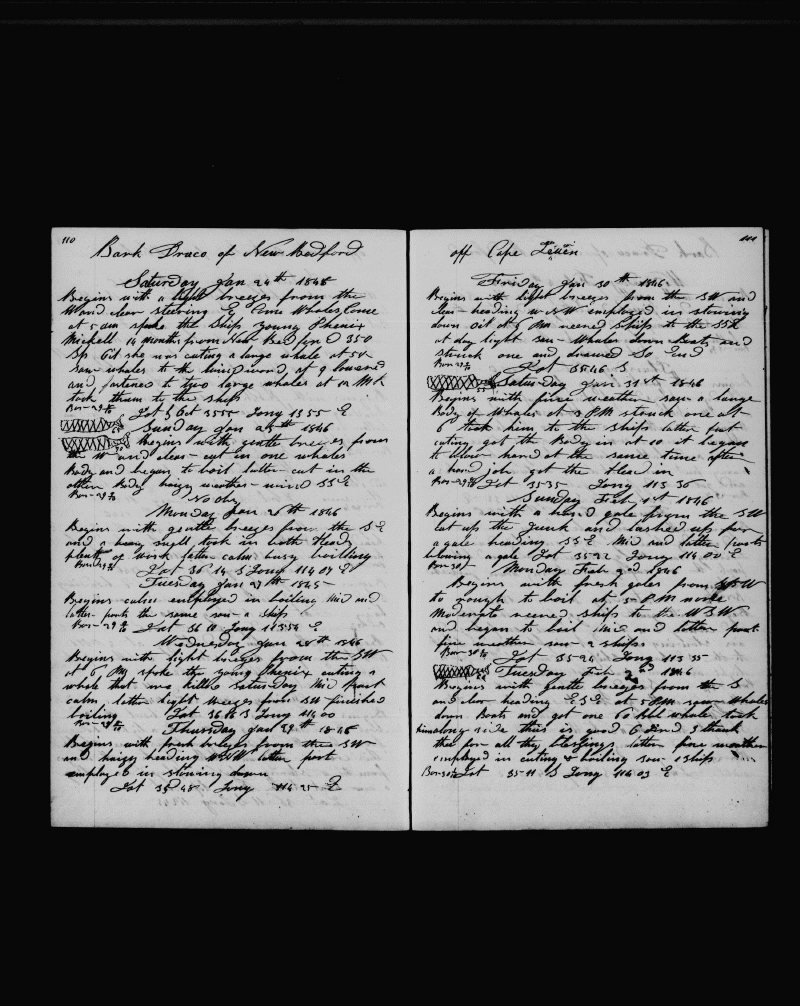 110
Bark Draco of New Bedford
Saturday Jan 24th 1846
Begins with a light breezes from the
W and clear steering E Some Whales Come
at 5 am spoke the Ship Young Phenix
14 months from New Bedford 350
Sp Oil she was cuting a large whale at 5
saw whales to the windward of 9 lowered
and fastened to two large whales at 11 AM
took them to the ship
Bar - 29
Lat 35 Long 1 55 E
Sunday Jan 25th 1846
Begins with gentle breezes from
the W and clear - cut in one whales
Body and began to boil latter cut in the
other Body haizy weather - wind SSE
Bar - 29
No Obs
Monday Jan 26th 1846
Begins with gentle breezes from the SE
and a heavy swell took in both Heads
plenty of work latter calm busy boiling
Bar 29
Lat 36 14 S Long 114 07 E
Tuesday Jan 27th 1845
Begins calm employed in boiling Mid and
latter parts the same saw a ship
Bar - 29
Lat 36 11 Long 113 54 E
Wednesday Jan 28th 1846
Begins with light breezes from the SW
at 6 PM spoke the Young Phenix cuting a
whale that we killed Saturday Mid part
calm latter light breezes from SW finished
boiling Lat 36 16 S Long 114 00
Bar - 29
Thursday Jan 29th 1846
Begins with fresh breezes from the SW
and haizy heading WSW latter part
employed in stowing down
Lat 35 48 Long 114 25 E
111
off Cape
Friday Jan 30th 1846
Begins with light breezes from the SW and
clear - heading W NW employed in stowing
down oil at 5 PM neered Ships to the SSE
at day light saw - Whales down Boats and
struck one and drawed So End
Bar 29
Lat 35 46 S
Saturday Jan 31st 1846
Begins with fine weather saw a large
Body of Whales at 3 PM struck one at
6 took him to the Ships latter part
cuting got the Body in at 10 it began
to blow hard at the same time after
a hard job got the Head in
Bar - 29 Lat 35 35 Long 113 36
Sunday Feb 1st 1846
Begins with a hard gale from the SW
cut up the Junk and lashed up for
a gale heading SSE Mid and latter parts
blowing a gale Lat 35 22 Long 114 00 E
Bar - 30
Monday Feb 2nd 1846
Begins with fresh gales from
to rough to boil at 5 PM more
Moderate neered ships to the WSW
and began to boil Mid and latter part
fine weather saw 2 ships
Bar 30
Lat 35 24 Long 113 35
Tuesday Feb 1846
Begins with gentle breezes from the S
and clear heading ESE at 6 PM saw Whales
down Boats and got one 60 bbl whale took
him along side this is good O Lord I thank
thee for all thy blessings latter fine weather
employed in cuting & boiling saw 1 Ship
Bar - 30 Lat 35 11 S Long 114 03 E